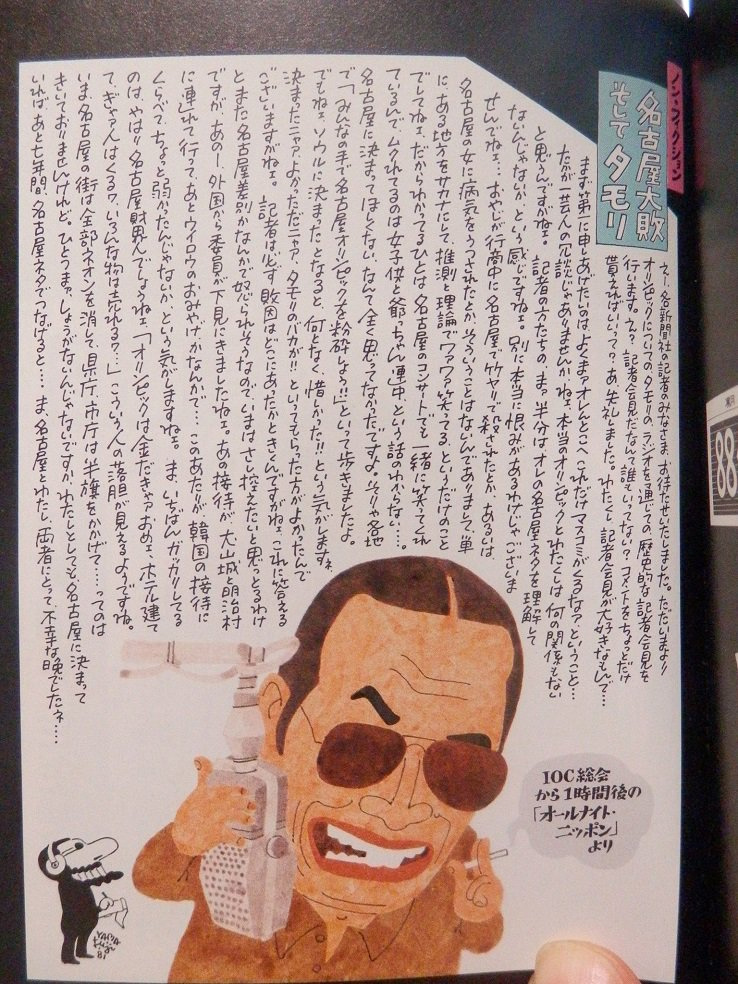 ノン・フィクション
名古屋大敗
そしてタモリ
えー、各新聞社の記者のみなさま、お待たせいたしました。ただいまより
オリンピックについての、タモリの、ラジオを通じての、歴史的な記者会見を
行います。え?記者会見だなんて誰もいってない?コメントをちょっとだけ
貰えればいいって?あ、失礼しました。わたくし、記者会見が大好きなもんで……
まず第一に申しあげたいのは、よくまァオレんとこへ、これだけマスコミがくるなァ、ということ……
たかが一芸人の冗談じゃありませんか、ねェ、本当のオリンピックとわたくしは、何の関係もない
と思うんですがねェ。記者の方たちの、まァ半分は、オレの名古屋ネタを理解して
ないんじゃないか、という感じですねェ。別に本当に恨みがあるわけじゃございま
せんでねェ……おやじが行商中に名古屋で竹ヤリで殺されたとか、あるいは、
名古屋の女に病気をうつされたとか、そういうことはないんでありまして、単
にある地方をサカナにして、推測と理論でワァワァ笑ってる、というだけのこと
でしてねェ、だからわかってるひとは、名古屋のコンサートでも一緒に笑ってくれ
ているんで、ムクれてるのは女子供と爺っちゃん連中、という話のわからない……。
名古屋に決まってほしくない、なんて全く思ってなかったですよ。そりゃ各地
で「みんなの手で名古屋オリンピックを粉砕しょう!!」といって歩きましたよ。
でもねェ、ソウルに決まった、となると、何となく、惜しかった!!という気がしますネ、
決まったニャァ、よかっただニャァ、タモリのバカが!!といってもらった方がよかったんで
ございますがねェ。記者は必ず敗因はどこにあったかときくんですがねェ、これに答える
とまた名古屋差別かなんかで怒られそうなので、いまはさし控えたいと思っとるわけ
ですが、あのー、外国から委員が下見にきましたねェ。あの接待が、犬山城と明治村
に連れて行って、あとウイロウのおみやげかなんかで……このあたりが韓国の接待に
くらべて、ちょっと弱かったんじゃないか、という気がしますねェ。ま、いちばんガッカリしてる
のは、やはり名古屋財界人でしょうねェ、「オリンピックは金だぎゃァ、おめェ、ホテル建て
て、ぎゃァ人はくるワ、いろんな物は売れるワ……」こういう人の落胆が見えるようですね。
いま、名古屋の街は全部ネオンを消して、県庁、市庁は半旗をかかげて……ってのは
きいておりませんけれど、ひとつまァ、しょうがないんじゃないですか、わたしとしても、名古屋に決まって
いれば、あと七年間、名古屋ネタでつなげると……ま、名古屋とわたし、両者にとって、不幸な晩でしたネ……
IOC総会
から1時間後の
「オールナイト・
ニッポン」
より
81
88